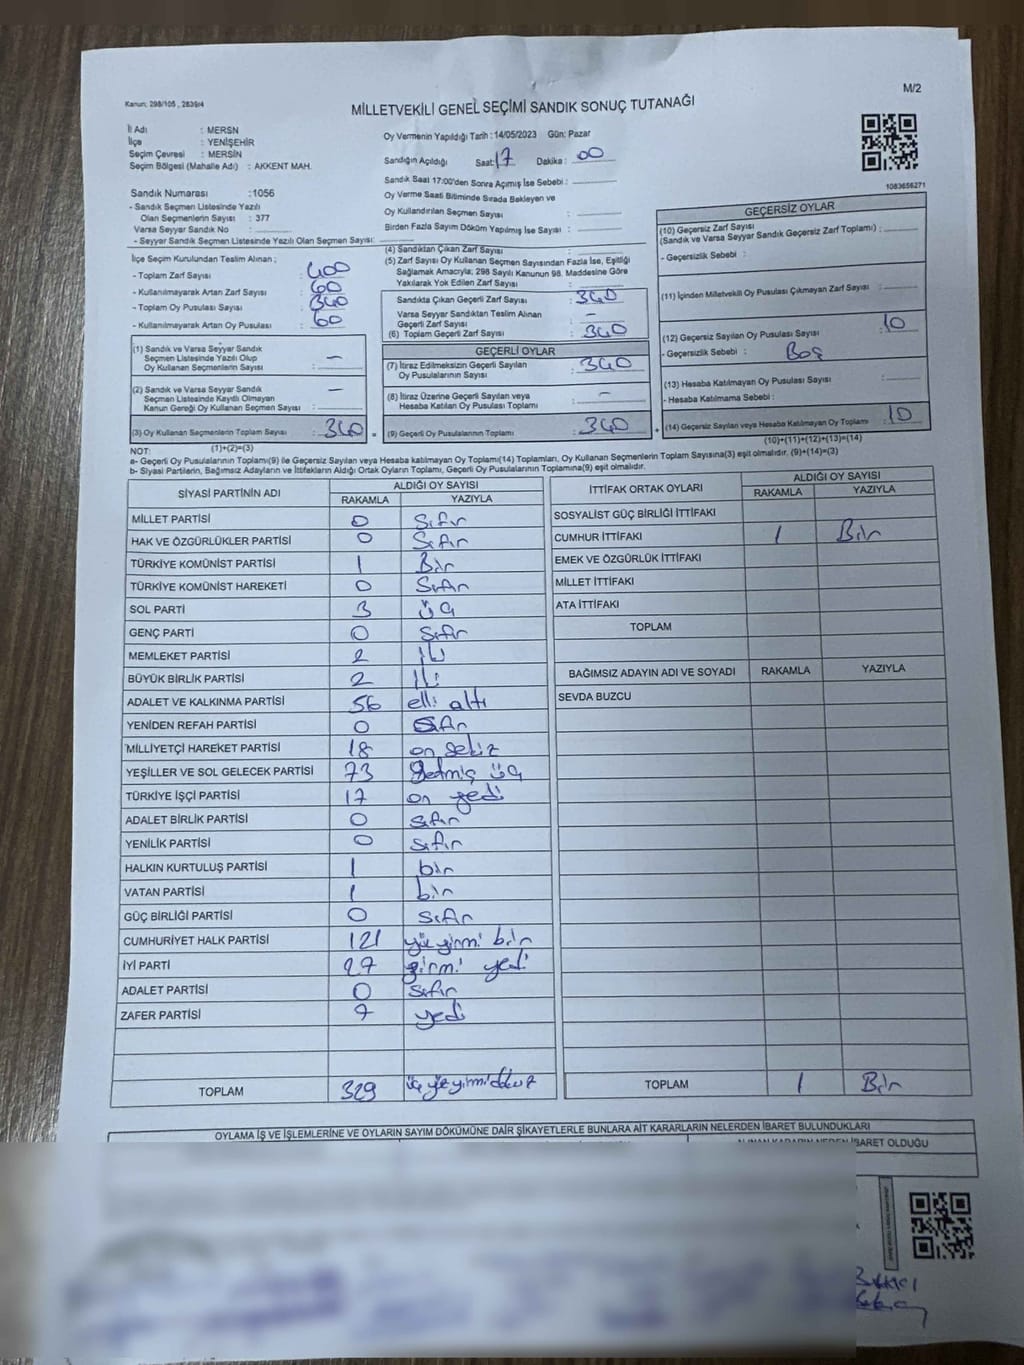 Kanun; 298/105 , 2839/4
M/2
MİLLETVEKİLİ GENEL SEÇİMİ SANDIK SONUÇ TUTANAĞI
İl Adı : MERSN
İlçe : YENİŞEHİR
Seçim Çevresi : MERSİN
Seçim Bölgesi (Mahalle Adı) : AKKENT MAH.
Sandık Numarası :1056
- Sandık Seçmen Listesinde Yazılı
Olan Seçmenlerin Sayısı : 377
Varsa Seyyar Sandık No :
- Seyyar Sandık Seçmen Listesinde Yazılı Olan Seçmen Sayısı:
İlçe Seçim Kurulundan Teslim Alınan ;
- Toplam Zarf Sayısı : 400
- Kullanılmayarak Artan Zarf Sayısı : 60
- Toplam Oy Pusulası Sayısı : 340
- Kullanılmayarak Artan Oy Pusulası : 60
(1) Sandık ve Varsa Seyyar Sandık
Seçmen Listesinde Yazılı Olup
Oy Kullanan Seçmenlerin Sayısı : –
(2) Sandık ve Varsa Seyyar Sandık
Seçmen Listesinde Kayıtlı Olmayan
Kanun Gereği Oy Kullanan Seçmen Sayısı : –
(3) Oy Kullanan Seçmenlerin Toplam Sayısı : 340
Oy Vermenin Yapıldığı Tarih :14/05/2023 Gün: Pazar
Sandığın Açıldığı Saat: 17 Dakika : 00
Sandık Saat 17:00'den Sonra Açılmış İse Sebebi :
Oy Verme Saati Bitiminde Sırada Bekleyen ve
Oy Kullandırılan Seçmen Sayısı :
Birden Fazla Sayım Döküm Yapılmış İse Sayısı :
(4) Sandıktan Çıkan Zarf Sayısı :
(5) Zarf Sayısı Oy Kullanan Seçmen Sayısından Fazla İse, Eşitliği
Sağlamak Amacıyla; 298 Sayılı Kanunun 98. Maddesine Göre
Yakılarak Yok Edilen Zarf Sayısı :
Sandıkta Çıkan Geçerli Zarf Sayısı : 340
Varsa Seyyar Sandıktan Teslim Alınan
Geçerli Zarf Sayısı : –
(6) Toplam Geçerli Zarf Sayısı : 340
GEÇERLİ OYLAR
(7) İtiraz Edilmeksizin Geçerli Sayılan
Oy Pusulalarının Sayısı : 340
(8) İtiraz Üzerine Geçerli Sayılan veya
Hesaba Katılan Oy Pusulası Toplamı : –
(9) Geçerli Oy Pusulalarının Toplamı : 340
1083656271
GEÇERSİZ OYLAR
(10) Geçersiz Zarf Sayısı
(Sandık ve Varsa Seyyar Sandık Geçersiz Zarf Toplamı) :
- Geçersizlik Sebebi :
(11) İçinden Milletvekili Oy Pusulası Çıkmayan Zarf Sayısı :
(12) Geçersiz Sayılan Oy Pusulası Sayısı : 10
- Geçersizlik Sebebi : Boş
(13) Hesaba Katılmayan Oy Pusulası Sayısı :
- Hesaba Katılmama Sebebi :
(14) Geçersiz Sayılan veya Hesaba Katılmayan Oy Toplamı : 10
NOT: (1)+(2)=(3) (10)+(11)+(12)+(13)=(14)
a- Geçerli Oy Pusulalarının Toplamı(9) ile Geçersiz Sayılan veya Hesaba katılmayan Oy Toplamı(14) Toplamları, Oy Kullanan Seçmenlerin Toplam Sayısına(3) eşit olmalıdır, (9)+(14)=(3)
b- Siyasi Partilerin, Bağımsız Adayların ve İttifakların Aldığı Ortak Oyların Toplamı, Geçerli Oy Pusulalarının Toplamına(9) eşit olmalıdır.
SİYASİ PARTİNİN ADI ALDIĞI OY SAYISI
RAKAMLA YAZIYLA
MİLLET PARTİSİ 0 Sıfır
HAK VE ÖZGÜRLÜKLER PARTİSİ 0 Sıfır
TÜRKİYE KOMÜNİST PARTİSİ 1 Bir
TÜRKİYE KOMÜNİST HAREKETİ 0 Sıfır
SOL PARTİ 3 üç
GENÇ PARTİ 0 Sıfır
MEMLEKET PARTİSİ 2 iki
BÜYÜK BİRLİK PARTİSİ 2 iki
ADALET VE KALKINMA PARTİSİ 56 elli altı
YENİDEN REFAH PARTİSİ 0 Sıfır
MİLLİYETÇİ HAREKET PARTİSİ 18 on sekiz
YEŞİLLER VE SOL GELECEK PARTİSİ 73 yetmiş üç
TÜRKİYE İŞÇİ PARTİSİ 17 on yedi
ADALET BİRLİK PARTİSİ 0 sıfır
YENİLİK PARTİSİ 0 sıfır
HALKIN KURTULUŞ PARTİSİ 1 bir
VATAN PARTİSİ 1 bir
GÜÇ BİRLİĞİ PARTİSİ 0 sıfır
CUMHURİYET HALK PARTİSİ 121 yüz yirmi bir
İYİ PARTİ 27 yirmi yedi
ADALET PARTİSİ 0 sıfır
ZAFER PARTİSİ 7 yedi
TOPLAM 329 üç yüz yirmi dokuz
İTTİFAK ORTAK OYLARI ALDIĞI OY SAYISI
RAKAMLA YAZIYLA
SOSYALİST GÜÇ BİRLİĞİ İTTİFAKI
CUMHUR İTTİFAKI 1 Bir
EMEK VE ÖZGÜRLÜK İTTİFAKI
MİLLET İTTİFAKI
ATA İTTİFAKI
TOPLAM
BAĞIMSIZ ADAYIN ADI VE SOYADI RAKAMLA YAZIYLA
SEVDA BUZCU
TOPLAM 1 Bir
OYLAMA İŞ VE İŞLEMLERİNE VE OYLARIN SAYIM DÖKÜMÜNE DAİR ŞİKAYETLERLE BUNLARA AİT KARARLARIN NELERDEN İBARET BULUNDUKLARI
ALINAN KARARIN NEDEN İBARET OLDUĞU